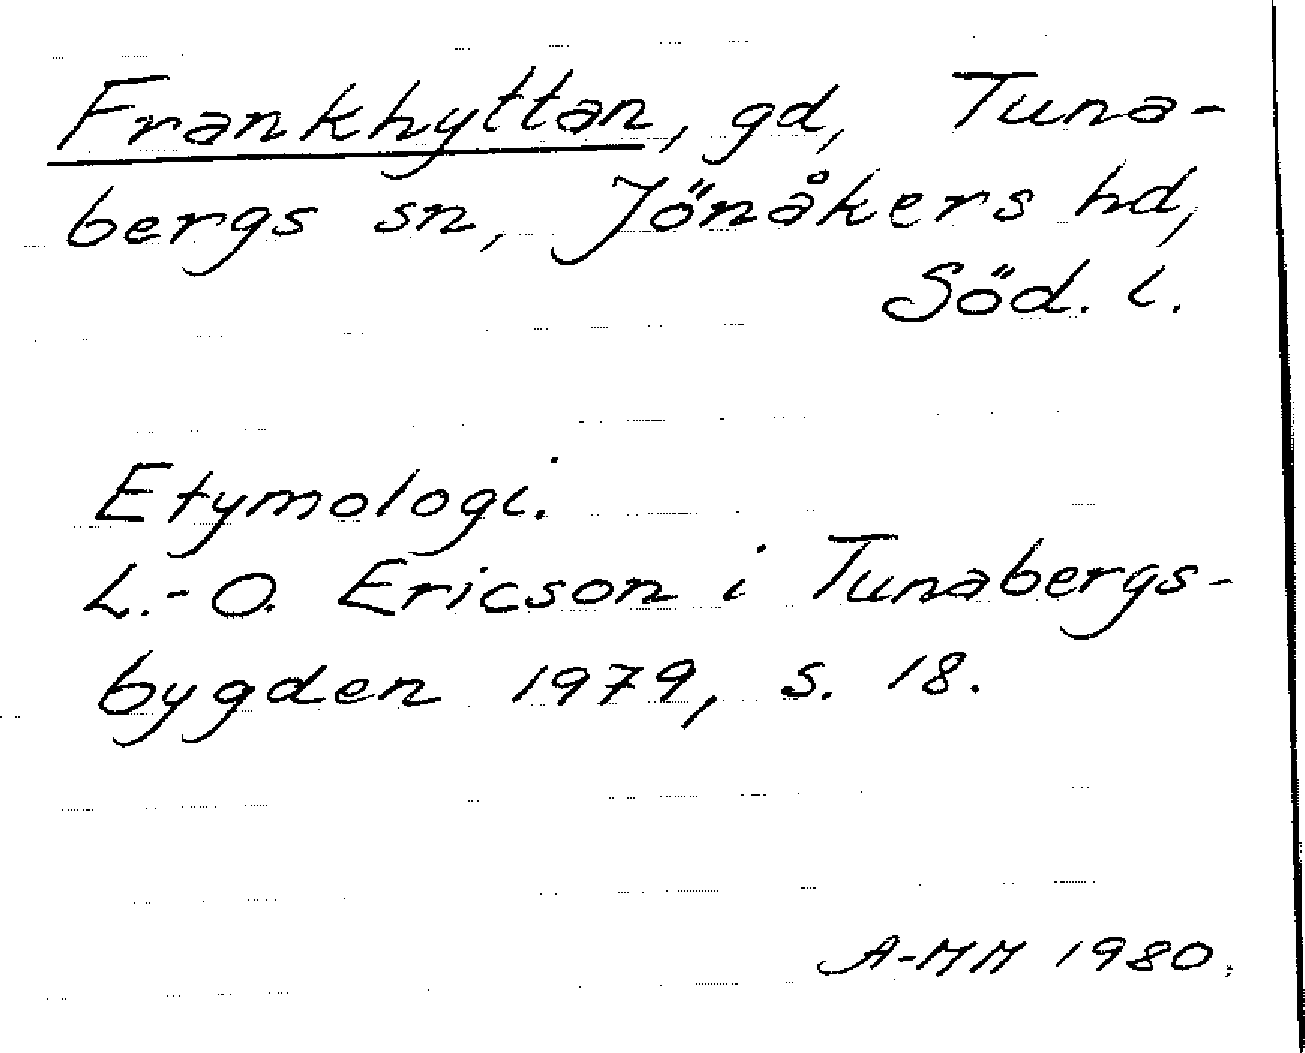 Frankhyttan, gd, Tuna-
bergs sn, Jönåkers hd,
Söd. l.
Etymologi.
L.-O. Ericson i Tunabergs-
bygden 1979, s. 18.
A-MM 1980.